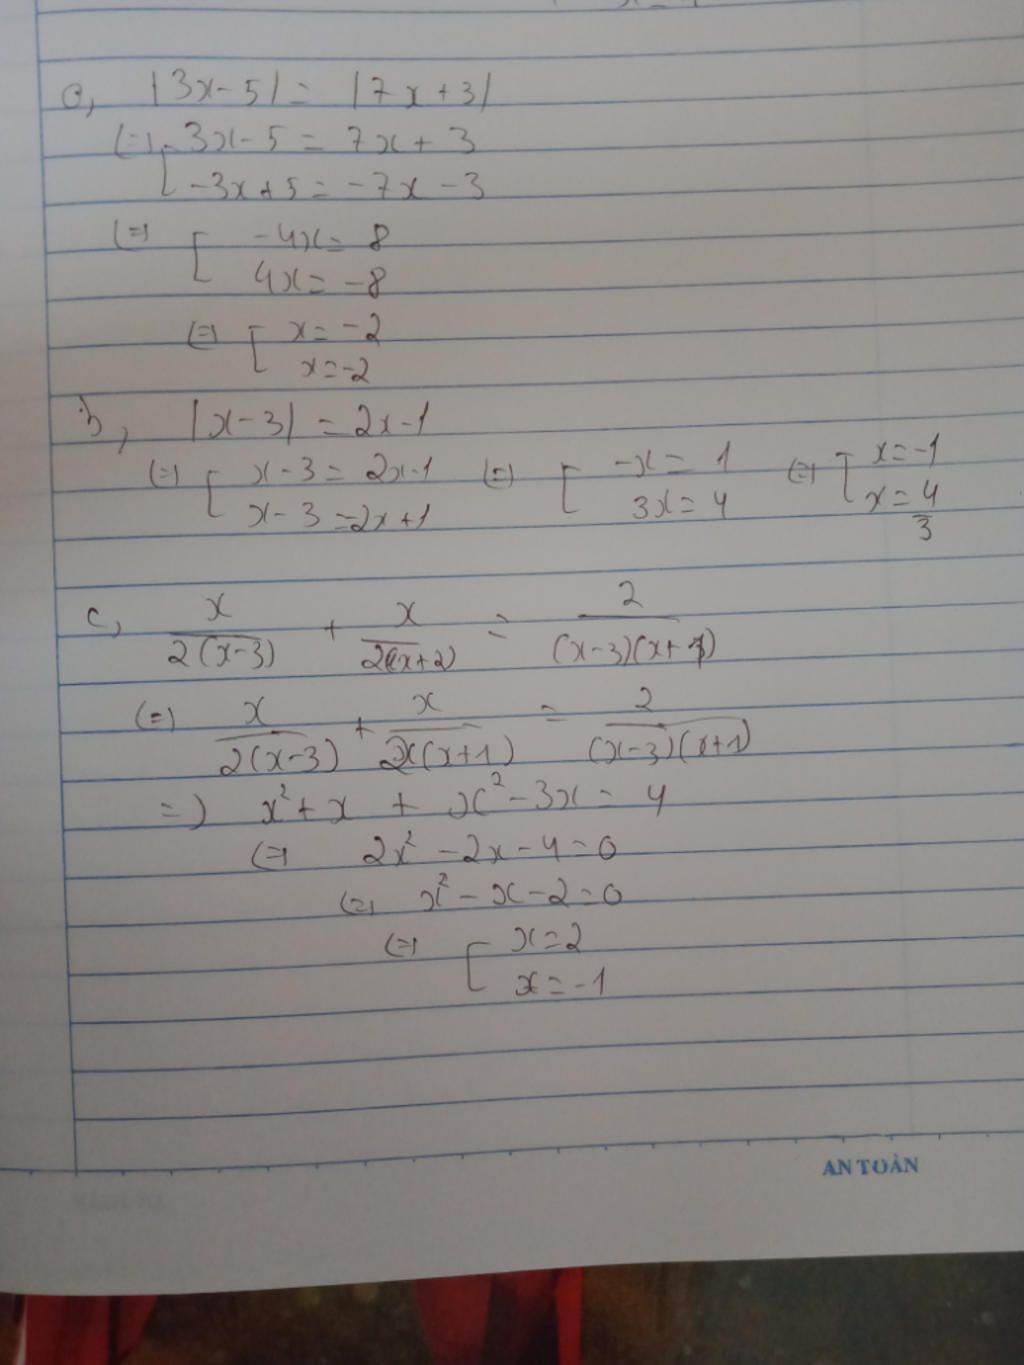 a, |3x-5| = |7x+3|
(=) [ 3x-5 = 7x+3
-3x+5 = -7x-3
(=) [ -4x = 8
4x = -8
(=) [ x = -2
x = -2
b, |x-3| = 2x-1
(=) [ x-3 = 2x-1 (=) [ -x = 1 (=) [ x = -1
x-3 = -2x+1 3x = 4 x = 4/3
c, x/2(x-3) + x/2(x+2) = 2/(x-3)(x+1)
(=) x/2(x-3) + x/2(x+1) = 2/(x-3)(x+1)
=) x²+x + x²-3x = 4
(=) 2x²-2x-4=0
(=) x²-x-2=0
(=) [ x=2
x=-1
AN TOÀN